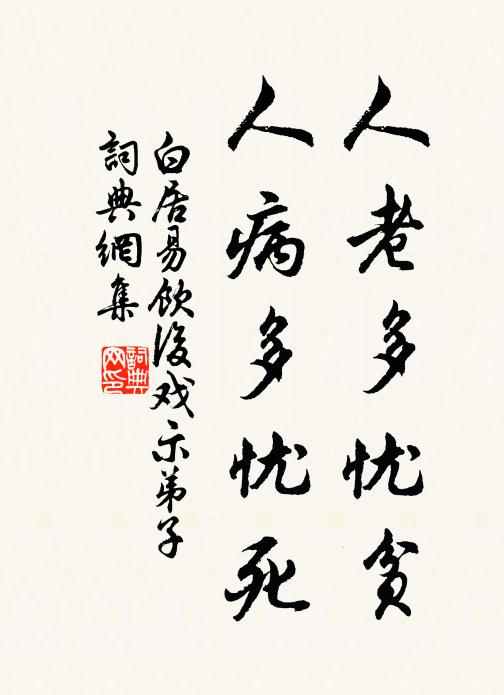 人老多忧贫
人病多忧死
白居易飲後戏示弟子
詞典網集
詞典网印